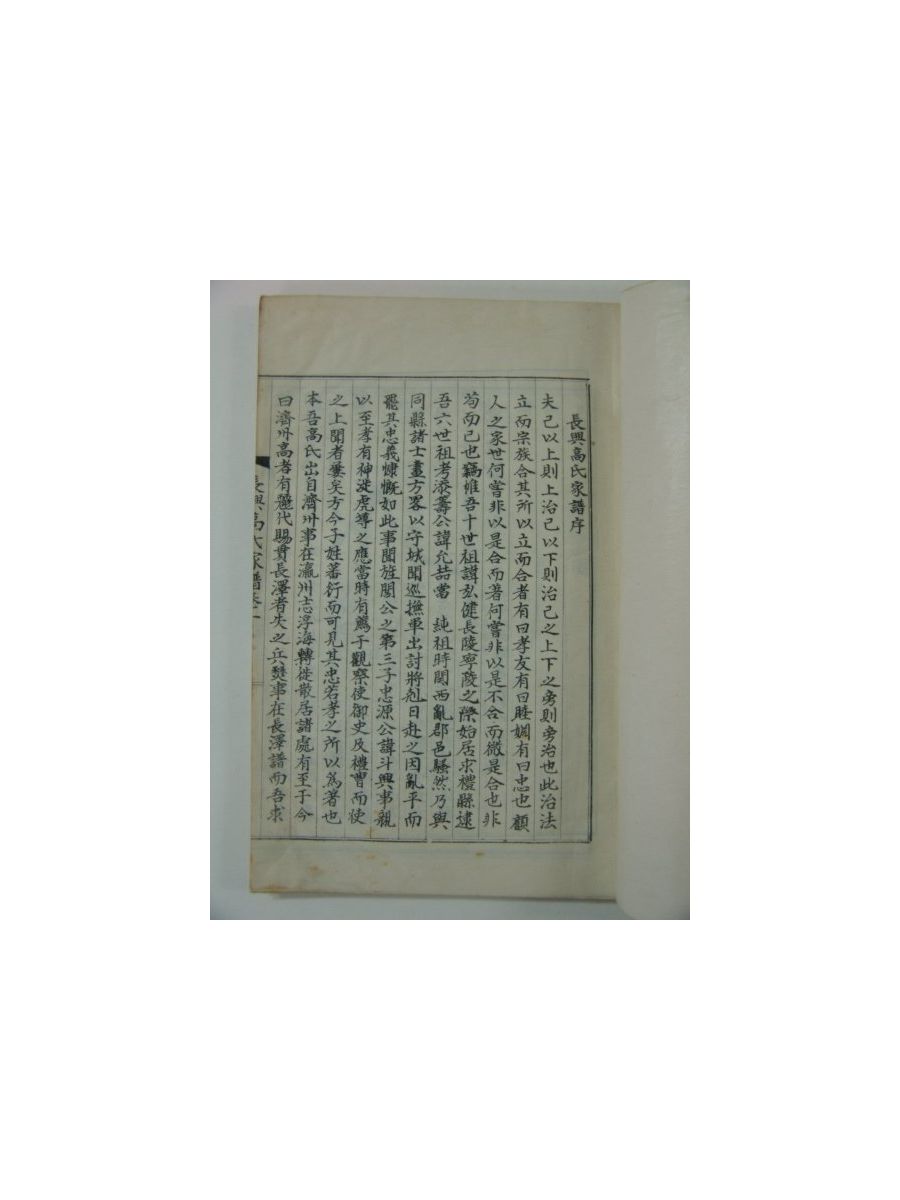 長興高氏家譜序
夫己以上則上治己以下則治己之上下之旁則旁治也此治法
立而宗族合其所以立而合者有曰孝友有曰睦婣有曰忠也顧
人之家世何嘗非以是合而著何嘗非以是不合而微是合也非
苟而已也竊惟吾十世祖諱弘健長陵寧陵之際始居求禮縣逮
吾六世祖考添籌公諱允喆當 純祖時関西亂郡邑騷然乃與
同縣諸士畫方畧以守城聞巡撫軍出討將剋日赴之因亂平而
罷其忠義慷慨如此事聞旌閭公之第三子忠源公諱斗興事親
以至孝有神泚虎導之應當時有薦于觀察使御史及禮曹而使
之上聞者屢矣方今子姓蕃衍而可見其忠若孝之所以爲著也
本吾高氏出自濟州事在瀛州志浮海轉徙散居諸處有至于今
曰濟州高者有麗代賜貫長澤者失之兵燹事在長澤譜而吾求
長興高氏家譜卷一